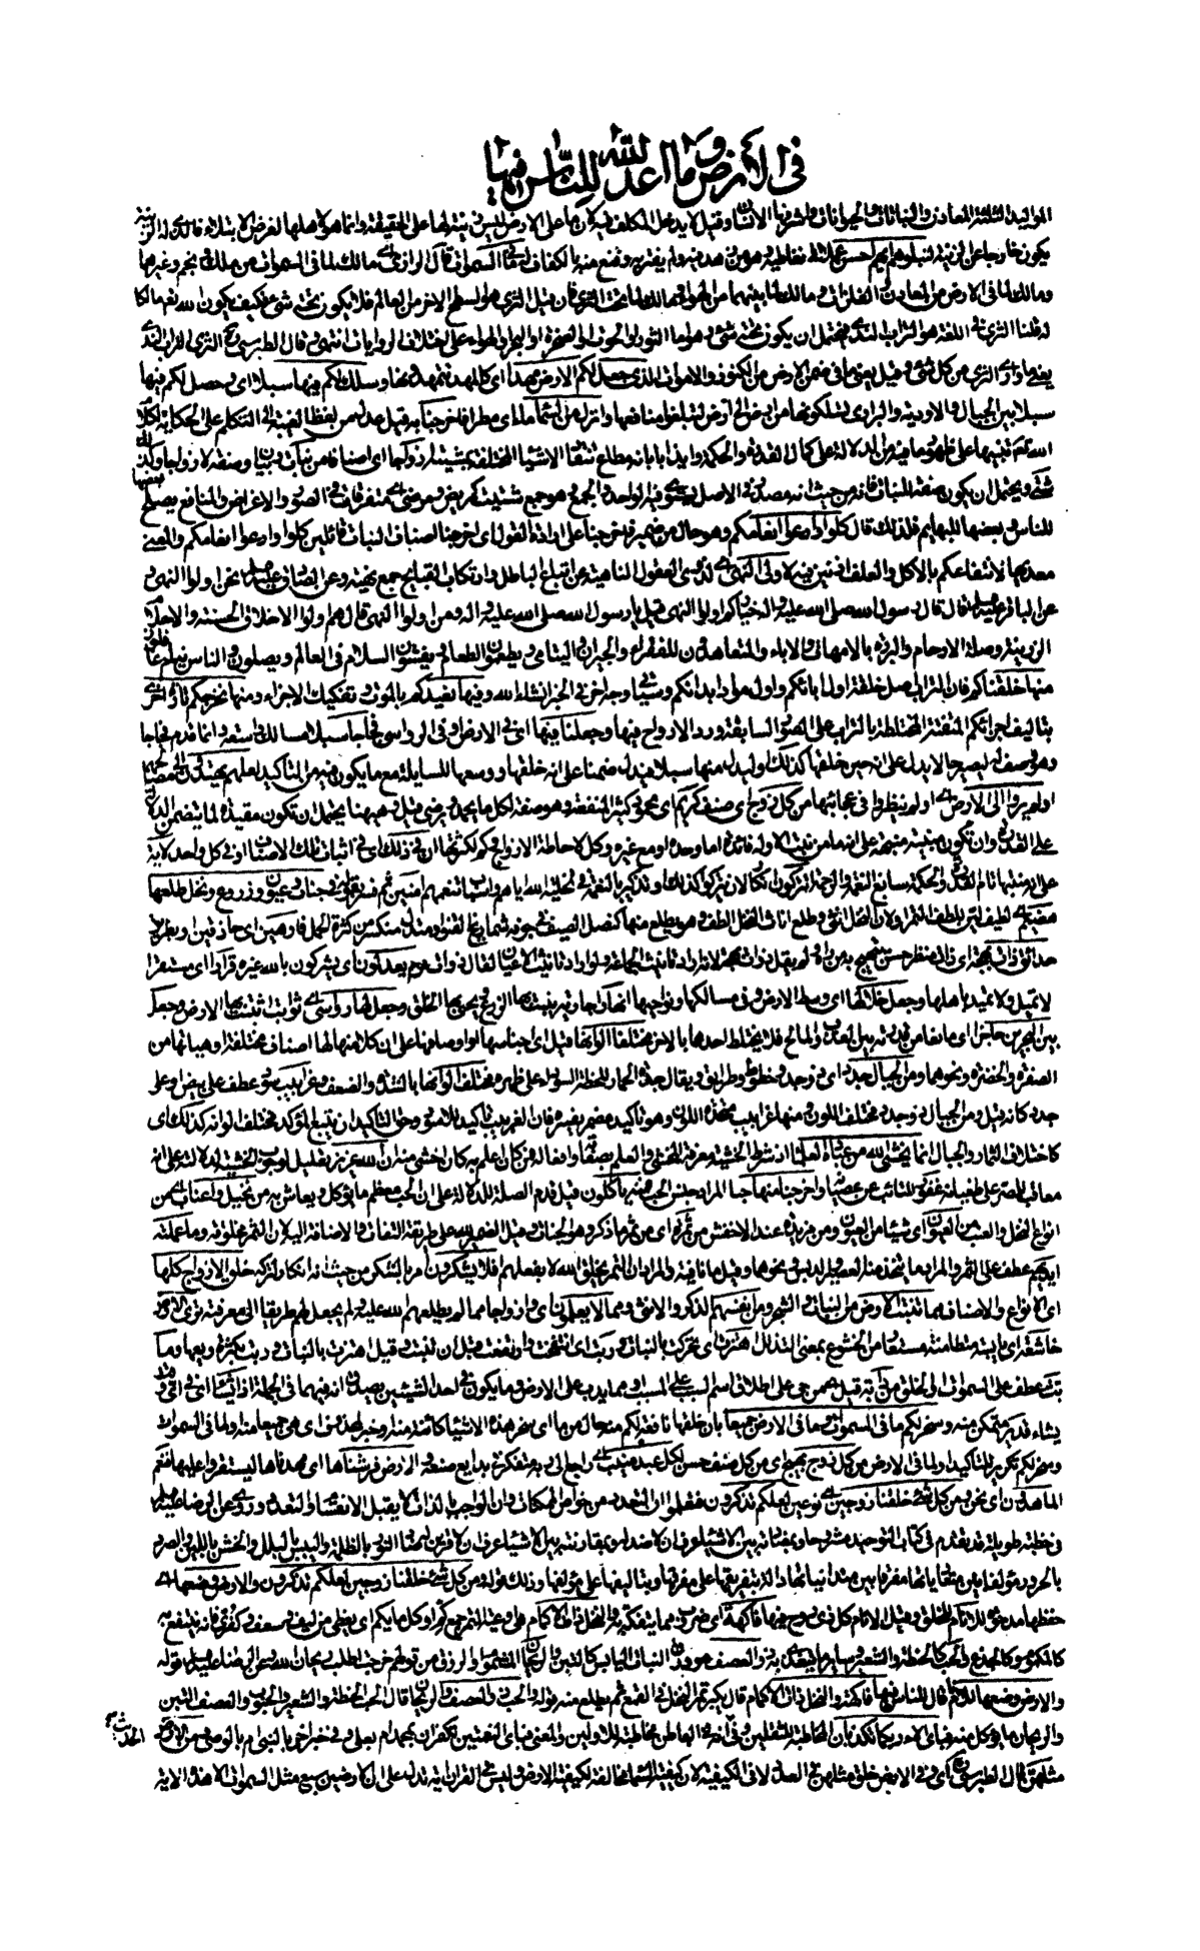 في الأرض وما أعد الله للناس فيها
المواليد الثلثة المعادن والنباتات والحيوانات واشرفها الانسان وقيل لا يدخل المكلف فيه لان ما على الارض ليس زينة لها على الحقيقة وانما هو لاهلها لغرض الابتلاء فالذي له الزينة
يكون خارجا عن الزينة لنبلوهم ايهم احسن عملا في تعاطيه وهو من زهد فيه ولم يغتر به وقنع منه بالكفاف له ما في السموات قال الرازي مالك لما في السموات من ملك ونجم وغيرهما
ومالك لما في الارض من المعادن والفلزات ومالك لما بينهما من الهواء ومالك لما تحت الثرى فان قيل الثرى هو السطح الاخير من العالم فلا يكون تحته شيء فكيف يكون الله تعم مالكا
له قلنا الثرى في اللغة هو التراب الندي فيحتمل ان يكون تحته شيء وهو اما الثور او الحوت او الصخرة او البحر او الهواء على اختلاف الروايات انتهى وقال الطبرسي الثرى التراب الندي
يعني ما وارى الثرى من كل شيء وقيل يعني ما في ضمن الارض من الكنوز والاموات الذي جعل لكم الارض مهدا اي كالمهد تتمهدونها وسلك لكم فيها سبلا اي وحصل لكم فيها
سبلا بين الجبال والاودية والبراري تسلكونها من ارض الى ارض لتبلغوا منافعها وانزل من السماء ماء اي مطرا فاخرجنا به قيل عدل من لفظ الغيبة الى التكلم على الحكاية لكلام
الله تعم تنبيها على ظهور ما فيه من الدلالة على كمال القدرة والحكمة وايذانا بانه مطاع تنقاد الاشياء المختلفة لمشيته ازواجا اي اصنافا من نبات بيان وصفة لازواجا وكذلك
شتى ويحتمل ان يكون صفة للنبات فانه من حيث انه مصدر في الاصل يستوي فيه الواحد والجمع وهو جمع شتيت كمريض ومرضى اي متفرقات في الصور والاغراض والمنافع يصلح بعضها
للناس وبعضها للبهائم فلذلك قال كلوا وارعوا انعامكم وهو حال من ضمير فاخرجنا على ارادة القول اي اخرجنا اصناف النبات قائلين كلوا وارعوا انعامكم والمعنى
معديها لانتفاعكم بالاكل والعلف اذنين فيه لاولي النهى لذوي العقول الناهية عن اتباع الباطل وارتكاب القبايح جمع نهية وعن الصادق عليه السلم نحن اولوا النهى
عن الباقر عليه السلم قال قال رسول الله صلى الله عليه واله ان خياركم اولوا النهى قيل يا رسول الله صلى الله عليه واله ومن اولوا النهى قال هم اولوا الاخلاق الحسنة والاحلام
الرزينة وصلة الارحام والبررة بالامهات والاباء والمتعاهدين للفقراء والجيران واليتامى ويطعمون الطعام ويفشون السلام في العالم ويصلون والناس نيام غافلون
منها خلقناكم فان التراب اصل خلقة اول ابائكم واول مواد ابدانكم وسيأتي وجه اخر في الخبر انشاء الله وفيها نعيدكم بالموت وتفكيك الاجزاء ومنها نخرجكم تارة اخرى
بتاليف اجزائكم المتفتتة المختلطة بالتراب على الصور السابقة ورد الارواح فيها وجعلنا فيها اي في الارض او في الرواسي فجاجا سبلا مسالك واسعة وانما قدم فجاجا
وهو وصف له ليصير حالا فيدل على انه حين خلقها كذلك او ليبدل منها سبلا فيدل ضمنا على انه خلقها ووسعها للسابلة مع ما يكون فيه من التاكيد لعلهم يهتدون الى مصالحهم
اولم يروا الى الارض اولم ينظروا في عجائبها من كل زوج اي صنف كريم اي محمود كثير المنفعة وهو صفة لكل ما يحمد ويرضى قيل وههنا يحتمل ان تكون مقيدة لما يتضمن الدلالة
على القدرة وان تكون مبينة منبهة على انه ما من نبت الا وله فائدة اما وحده او مع غيره وكل لاحاطة الازواج وكم لكثرتها ان في ذلك اي في اثبات تلك الاصناف او في كل واحد لاية
على ان منبتها تام القدرة والحكمة سابغ النعمة والرحمة اتتركون انكار لان يتركوا كذلك او تذكير بالنعمة في تخلية الله اياهم واسباب تنعمهم امنين ثم فسره بقوله في جنات وعيون وزروع ونخل طلعها
هضيم لطيف لين للطف الثمر او لان النخل انثى وطلع اناث النخل الطف وهو ما يطلع منها كنصل السيف في جوفه شماريخ القنو او متدل منكسر من كثرة الحمل فارهين اي حاذقين او بطرين
حدائق ذات بهجة اي ذات منظر حسن يبتهج به من راه ولم يقل ذوات بهجة لانه اراد تانيث الجماعة ولو اراد تانيث الاعيان لقال ذوات قوم يعدلون اي يشركون بالله غيره قرارا اي مستقرا
لا تميل ولا تميد باهلها وجعل خلالها اي وسط الارض وفي مسالكها ونواحيها انهارا جارية ينبت بها الزرع ويحيى بها الخلق وجعل لها رواسي ثوابت اثبتت بها الارض وجعل
بين البحرين حاجزا اي مانعا من قدرته بين العذب والمالح فلا يختلط احدهما بالاخر مختلفا الوانها قيل اي اجناسها او اصنافها على ان كلا منها لها اصناف مختلفة او هيأتها من
الصفرة والخضرة ونحوهما ومن الجبال جدد اي ذو جدد خطوط وطرايق يقال جدة الحمار للخطة السوداء على ظهره مختلف الوانها بالشدة والضعف وغرابيب سود عطف على بيض او على
جدد كانه قيل ومن الجبال ذو جدد مختلف اللون ومنها غرابيب متحدة اللون وهو تاكيد مضمر يفسره فان الغربيب تاكيد للاسود وحق التاكيد ان يتبع المؤكد مختلف الوانه كذلك اي
كاختلاف الثمار والجبال انما يخشى الله من عباده العلماء اذ شرط الخشية معرفة المخشي والعلم بصفاته وافعاله فمن كان اعلم به كان اخشى منه ان الله عزيز غفور تعليل لوجوب الخشية لدلالته على انه
معاقب للمصر على طغيانه غفور للتائب عن عصيانه واخرجنا منها حبا المراد جنس الحب فمنه ياكلون قيل قدم الصلة للدلالة على ان الحب معظم ما يؤكل ويعاش به من نخيل واعناب اي من
انواع النخل والعنب من العيون اي شيئا من العيون ومن مزيدة عند الاخفش من ثمره اي من ثمر ما ذكر وهو الجنات وقيل الضمير لله على طريقة التفات والاضافة اليه لان الثمر مخلوقه وما عملته
ايديهم عطف على الثمر والمراد ما يتخذ منه كالعصير والدبس ونحوهما وقيل ما نافية والمراد ان الثمر بخلق الله لا بفعلهم افلا يشكرون امر بالشكر من حيث انه انكار لتركه خلق الازواج كلها
اي الانواع والاصناف مما تنبت الارض من النبات والشجر ومن انفسهم الذكر والانثى ومما لا يعلمون اي وازواجا مما لم يطلعهم الله عليه ولم يجعل لهم طريقا الى معرفته ترى الارض
خاشعة اي يابسة متطامنة مستعار من الخشوع بمعنى التذلل اهتزت اي تحركت بالنبات وربت اي انتفخت وارتفعت قبل ان تنبت وقيل اهتزت بالنبات وربت بكثرة ريعها وما
بث عطف على السموات او الخلق من دابة قيل اي من حي على اطلاق اسم السبب على المسبب او مما يدب على الارض وما يكون في احد الشيئين يصدق انه فيهما في الجملة اذا يشاء اي في اي وقت
يشاء قدير متمكن منه وسخر لكم ما في السموات وما في الارض جميعا بان خلقها نافعة لكم منه حال من ما اي سخر هذه الاشياء كائنة منه او خبر لمحذوف اي هي جميعا منه او لما في السموات
وسخر لكم تكرير للتاكيد او لما في الارض من كل زوج بهيج اي من كل صنف حسن لكل عبد منيب راجع الى ربه متفكر في بدايع صنعه والارض فرشناها اي مهدناها ليستقروا عليها فنعم
الماهدون اي نحن ومن كل شيء خلقنا زوجين اي نوعين لعلكم تذكرون فتعلموا ان التعدد من خواص الممكنات وان الواجب بالذات لا يقبل الانقسام والتعدد وروي عن الرضا عليه السلم
في خطبة طويلة قد تقدم في كتاب التوحيد مشروحا وبمضادته بين الاشياء عرف ان لا ضد له وبمقارنته بين الاشياء عرف ان لا قرين له ضاد النور بالظلمة واليبس بالبلل والخشن باللين والصرد
بالحرور مؤلفا بين متعادياتها مفرقا بين متدانياتها دالة بتفريقها على مفرقها وبتاليفها على مؤلفها وذلك قوله ومن كل شيء خلقنا زوجين لعلكم تذكرون والارض وضعها اي
خفضها مدحوة للانام للخلق وقيل الانام كل ذي روح فيها فاكهة اي ضروب مما يتفكه به والنخل ذات الاكمام هي اوعية التمر جمع كم او كل ما يكم اي يغطى من ليف وسعف وكفرى فانه ينتفع به
كالمكموم وكالجذع والحب كالحنطة والشعير وساير ما يتغذى به ذو العصف هو ورق النبات اليابس كالتبن والريحان المشموم او الرزق من قولهم خرجت اطلب ريحان الله وعن الرضا عليه السلم قوله
والارض وضعها للانام قال للناس فيها فاكهة والنخل ذات الاكمام قال يكبر ثمر النخل في القمع ثم يطلع منه قوله والحب ذو العصف والريحان قال الحب الحنطة والشعير والحبوب والعصف التبن
والريحان ما يؤكل منه فباي الاء ربكما تكذبان المخاطبة للثقلين وفي الباطن مخاطبة للاولين والمعنى فباي النعمتين تكفران بمحمد ام بعلي وفي خبر اخر بالنبي ام بالوصي ومن الارض
مثلهن قال الطبرسي اي وفي الارض خلق مثلهن في العدد لا في الكيفية لان كيفية السماء مخالفة لكيفية الارض وليس في القران اية تدل على ان الارضين سبع مثل السموات الا هذه الاية